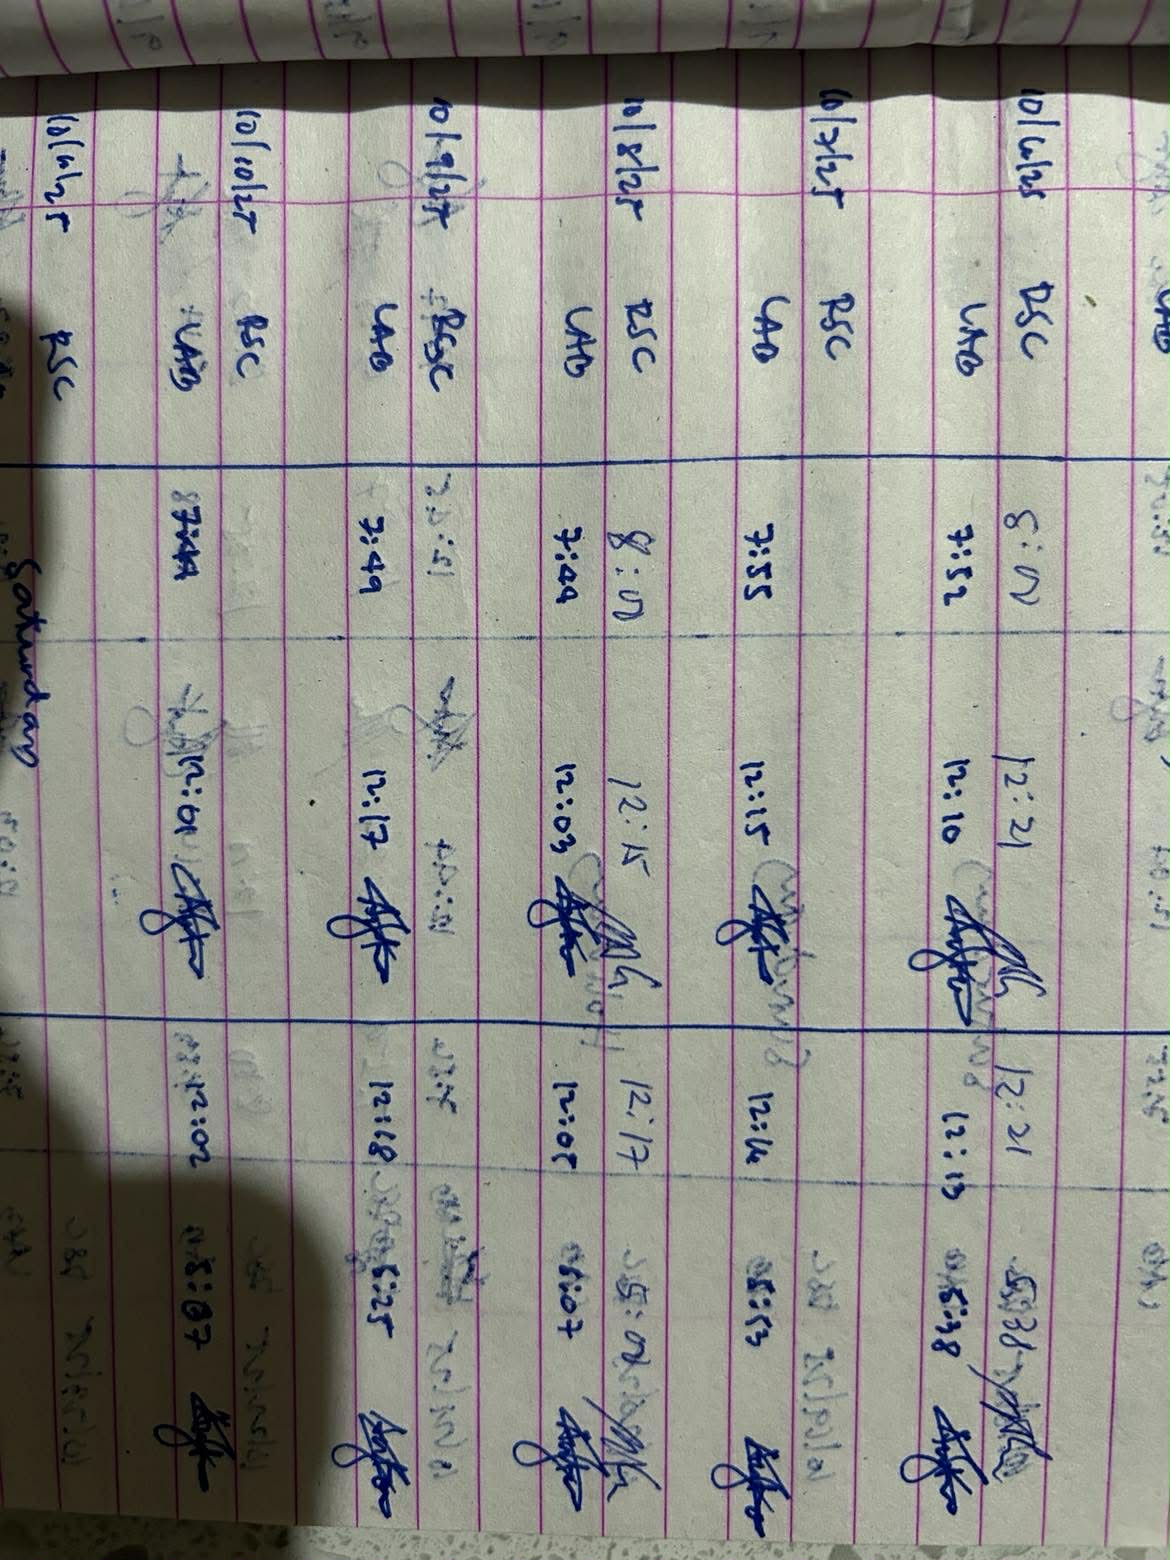 10/6/25 RSC 8:00 12:21 12:21 5:38
LAB 7:52 12:10 12:13 5:38
10/7/25 RSC
LAB 7:55 12:15 12:16 5:53
10/8/25 RSC 8:00 12:15 12:17 5:02
LAB 7:49 12:03 12:05 5:07
10/9/25 RSC
LAB 7:49 12:17 12:18 5:25
10/10/25 RSC
LAB 7:49 12:01 12:02 5:07
10/11/25 RSC
Saturday